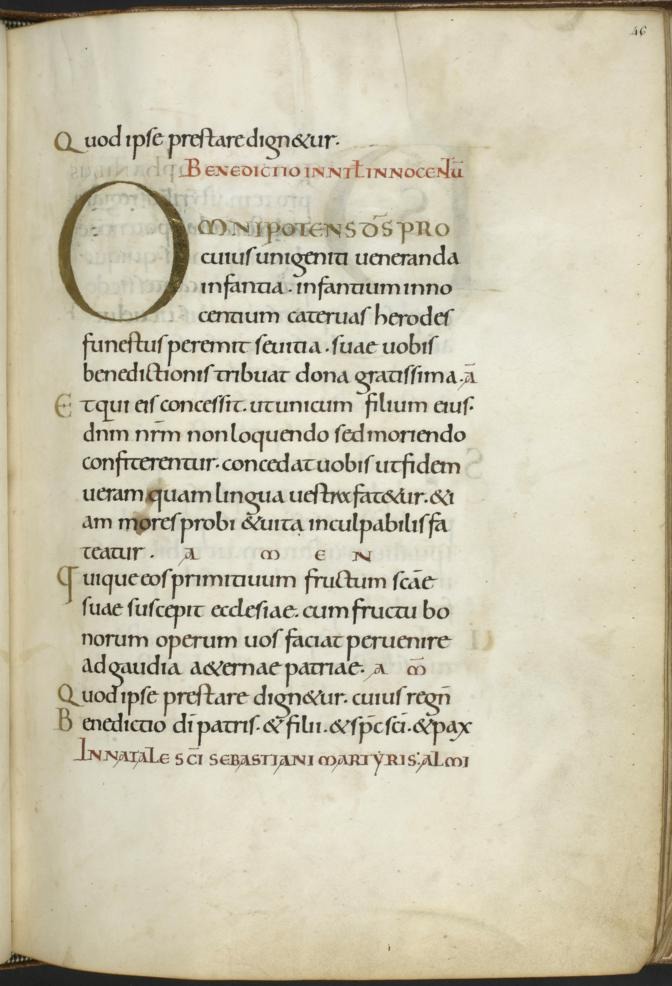 46
Quod ipse prestare dign&ur.
BENEDICTIO IN NT̄L INNOCENTŪ
OMNIPOTENS D̄S PRO
cuius unigeniti ueneranda
infantia. infantium inno
centium cateruas herodes
funestus peremit seuitia. suae uobis
benedictionis tribuat dona gratissima. ā
Et qui eis concessit. ut unicum filium eius.
dnm nr̄m non loquendo sed moriendo
confiterentur. concedat uobis ut fidem
ueram quam lingua uestra fat&ur. &i
am mores probi & uita inculpabilis fa
teatur. A M E N
Quique eos primitiuum fructum sc̄ae
suae suscepit ecclesiae. cum fructu bo
norum operum uos faciat peruenire
ad gaudia a&ernae patriae. A M̄
Quod ipse prestare dign&ur. cuius regn̄
Benedictio dī patris. & filii. & sp̄c sc̄i. & pax
IN NATALE SC̄I SEBASTIANI MARTYRIS; ALMI